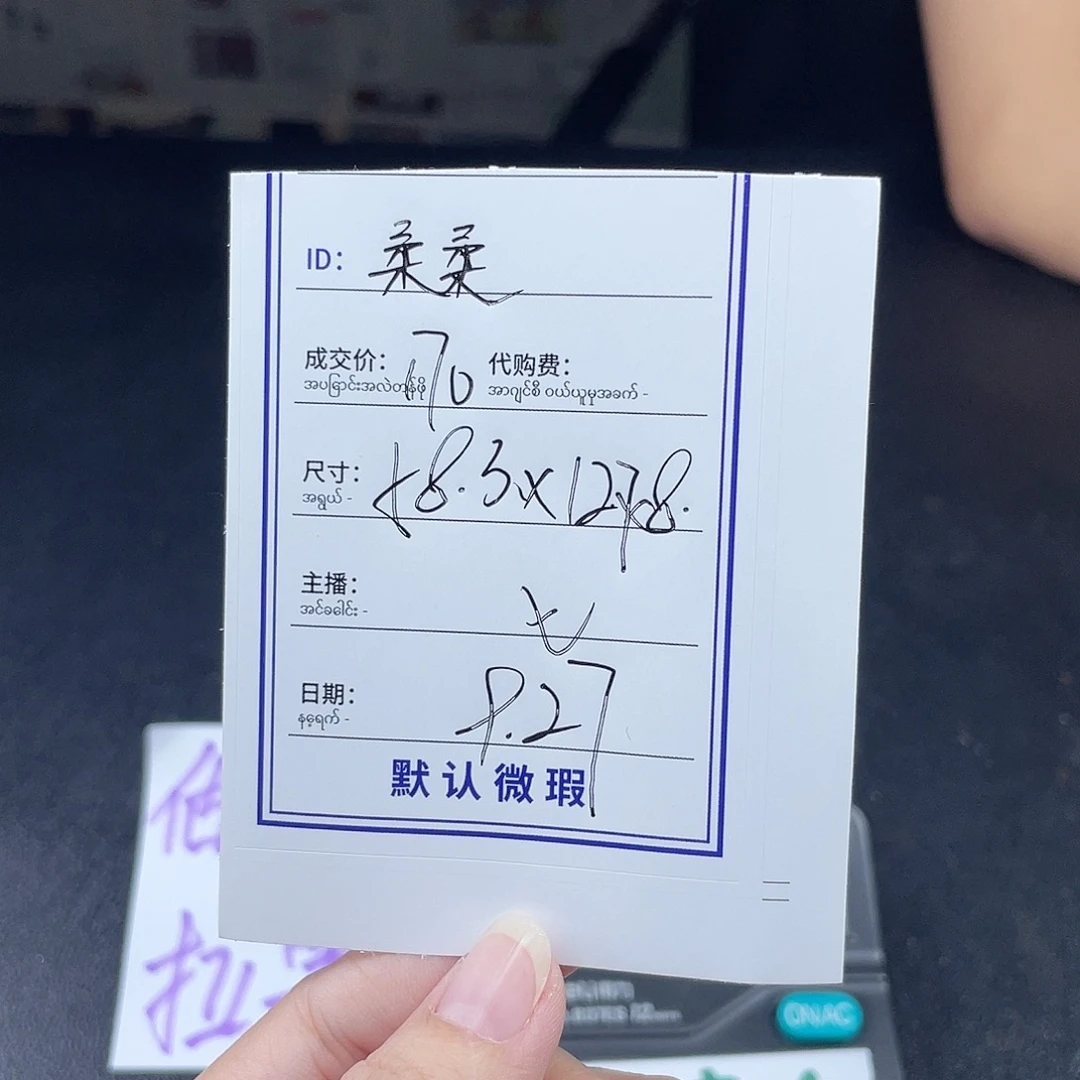 ID: 柔柔
成交价: 170 代购费:
အပြောင်းအလဲတန်ဖို အာဂျင်စီ ဝယ်ယူမှုအခက် -
尺寸: 58.3x12.7x8.
အရွယ် -
主播:
အင်ခခေါင်း -
日期: 9.27
နေ့ရက် -
默认微瑕
GNAC